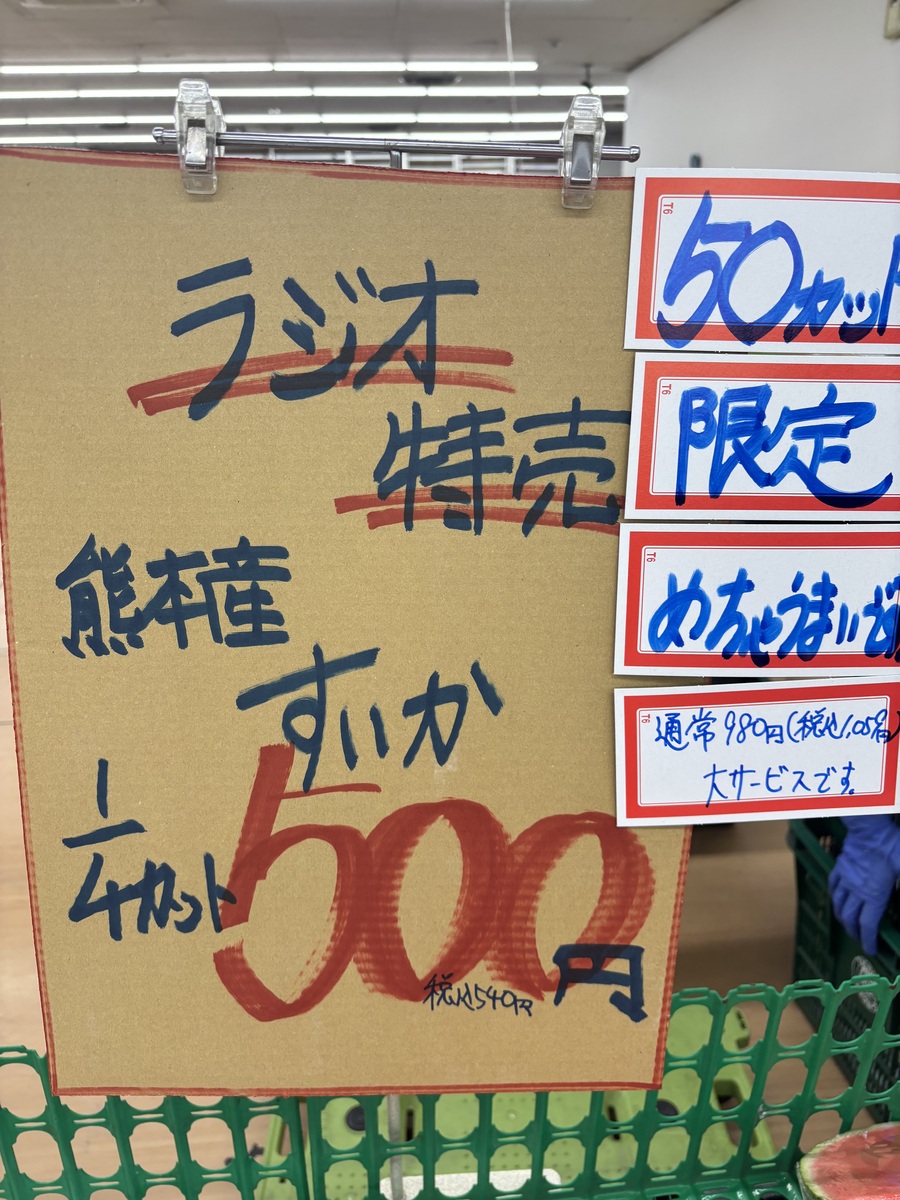 ラジオ
特売
熊本産
すいか
1/4カット
500円
税込540円
50カット
限定
めちゃうまいぞ
通常980円(税込1,058円)
大サービスです。
T6
T6
T6
T6